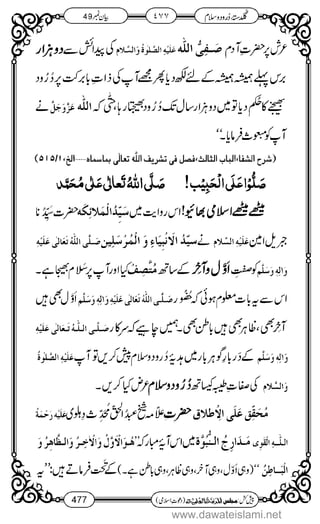 بیان نمبر 49
۴۷۷
گلدستۂ دُرود و سلام
عرش پر حضرتِ آدم صَفِیُّ اللہ عَلَیْہِ الصَّلٰوۃُ وَالسَّلَام کی پیدائش سے دو ہزار
برس پہلے ہمیشہ ہمیشہ کے لئے لکھ دیا، پھر مجھے آپ کی ذاتِ بابرکات پر دُرُود
بھیجنے کا حکم دیا تو میں دو ہزار سال تک دُرُود بھیجتا رہا، حتّٰی کہ اللہ عَزَّوَجَلَّ نے
آپ کو مبعوث فرمایا۔‘‘
(شرح الشفاء،الباب الثالث،فصل فی تشریف اللہ تعالٰی بماسماہ.....الخ،۵۱۵/۱)
صَلُّوْا عَلَی الْحَبِیْب! صَلَّی اللہُ تَعَالٰی عَلٰی مُحَمَّد
میٹھے میٹھے اسلامی بھائیو! اس روایت میں سَیِّدُ الْمَلَائِکَہ حضرت سَیِّدُنا
جبریلِ امین عَلَیْہِ السَّلَام نے سَیِّدُ الْاَنْبِیَاءِ وَ الْمُرْسَلِیْن صَلَّی اللہُ تَعَالٰی عَلَیْہِ
وَاٰلِہٖ وَسَلَّم کو صفتِ اَوَّل وَ آخِر کے ساتھ مُتَّصِف کیا اور آپ پر سلام بھیجا ہے۔
اس سے یہ بات معلوم ہوئی کہ حُضُور صَلَّی اللہُ تَعَالٰی عَلَیْہِ وَاٰلِہٖ وَسَلَّم اَوَّل بھی ہیں
آخر بھی، ظاہر بھی ہیں باطن بھی۔ ہمیں چاہیے کہ سرکار صَلَّی اللہُ تَعَالٰی عَلَیْہِ
وَاٰلِہٖ وَسَلَّم کے دربارِ گوہر بار میں ہدیۂ دُرود و سلام پیش کریں تو آپ عَلَیْہِ الصَّلٰوۃُ
وَالسَّلَام کی صفاتِ طیبہ کے ساتھ دُرود و سلام عرض کیا کریں۔
مُحَقِّق عَلَی الْاِطلاق حضرت علّامہ شیخ عبدُالحقّ مُحَدِّث دہلوی عَلَیْہِ رَحْمَۃُ
اللہِ الْقَوِی مَدَارِجُ النُّبُوَّۃ میں آیۂ مبارکہ ’’هُوَ الْاَوَّلُ وَ الْاٰخِرُ وَ الظَّاهِرُ وَ
الْبَاطِنُ‘‘ (وہی اوّل، وہی آخر، وہی ظاہر، وہی باطن ہے۔) کے تحت فرماتے ہیں: ’’یہ
477
www.dawateislami.net